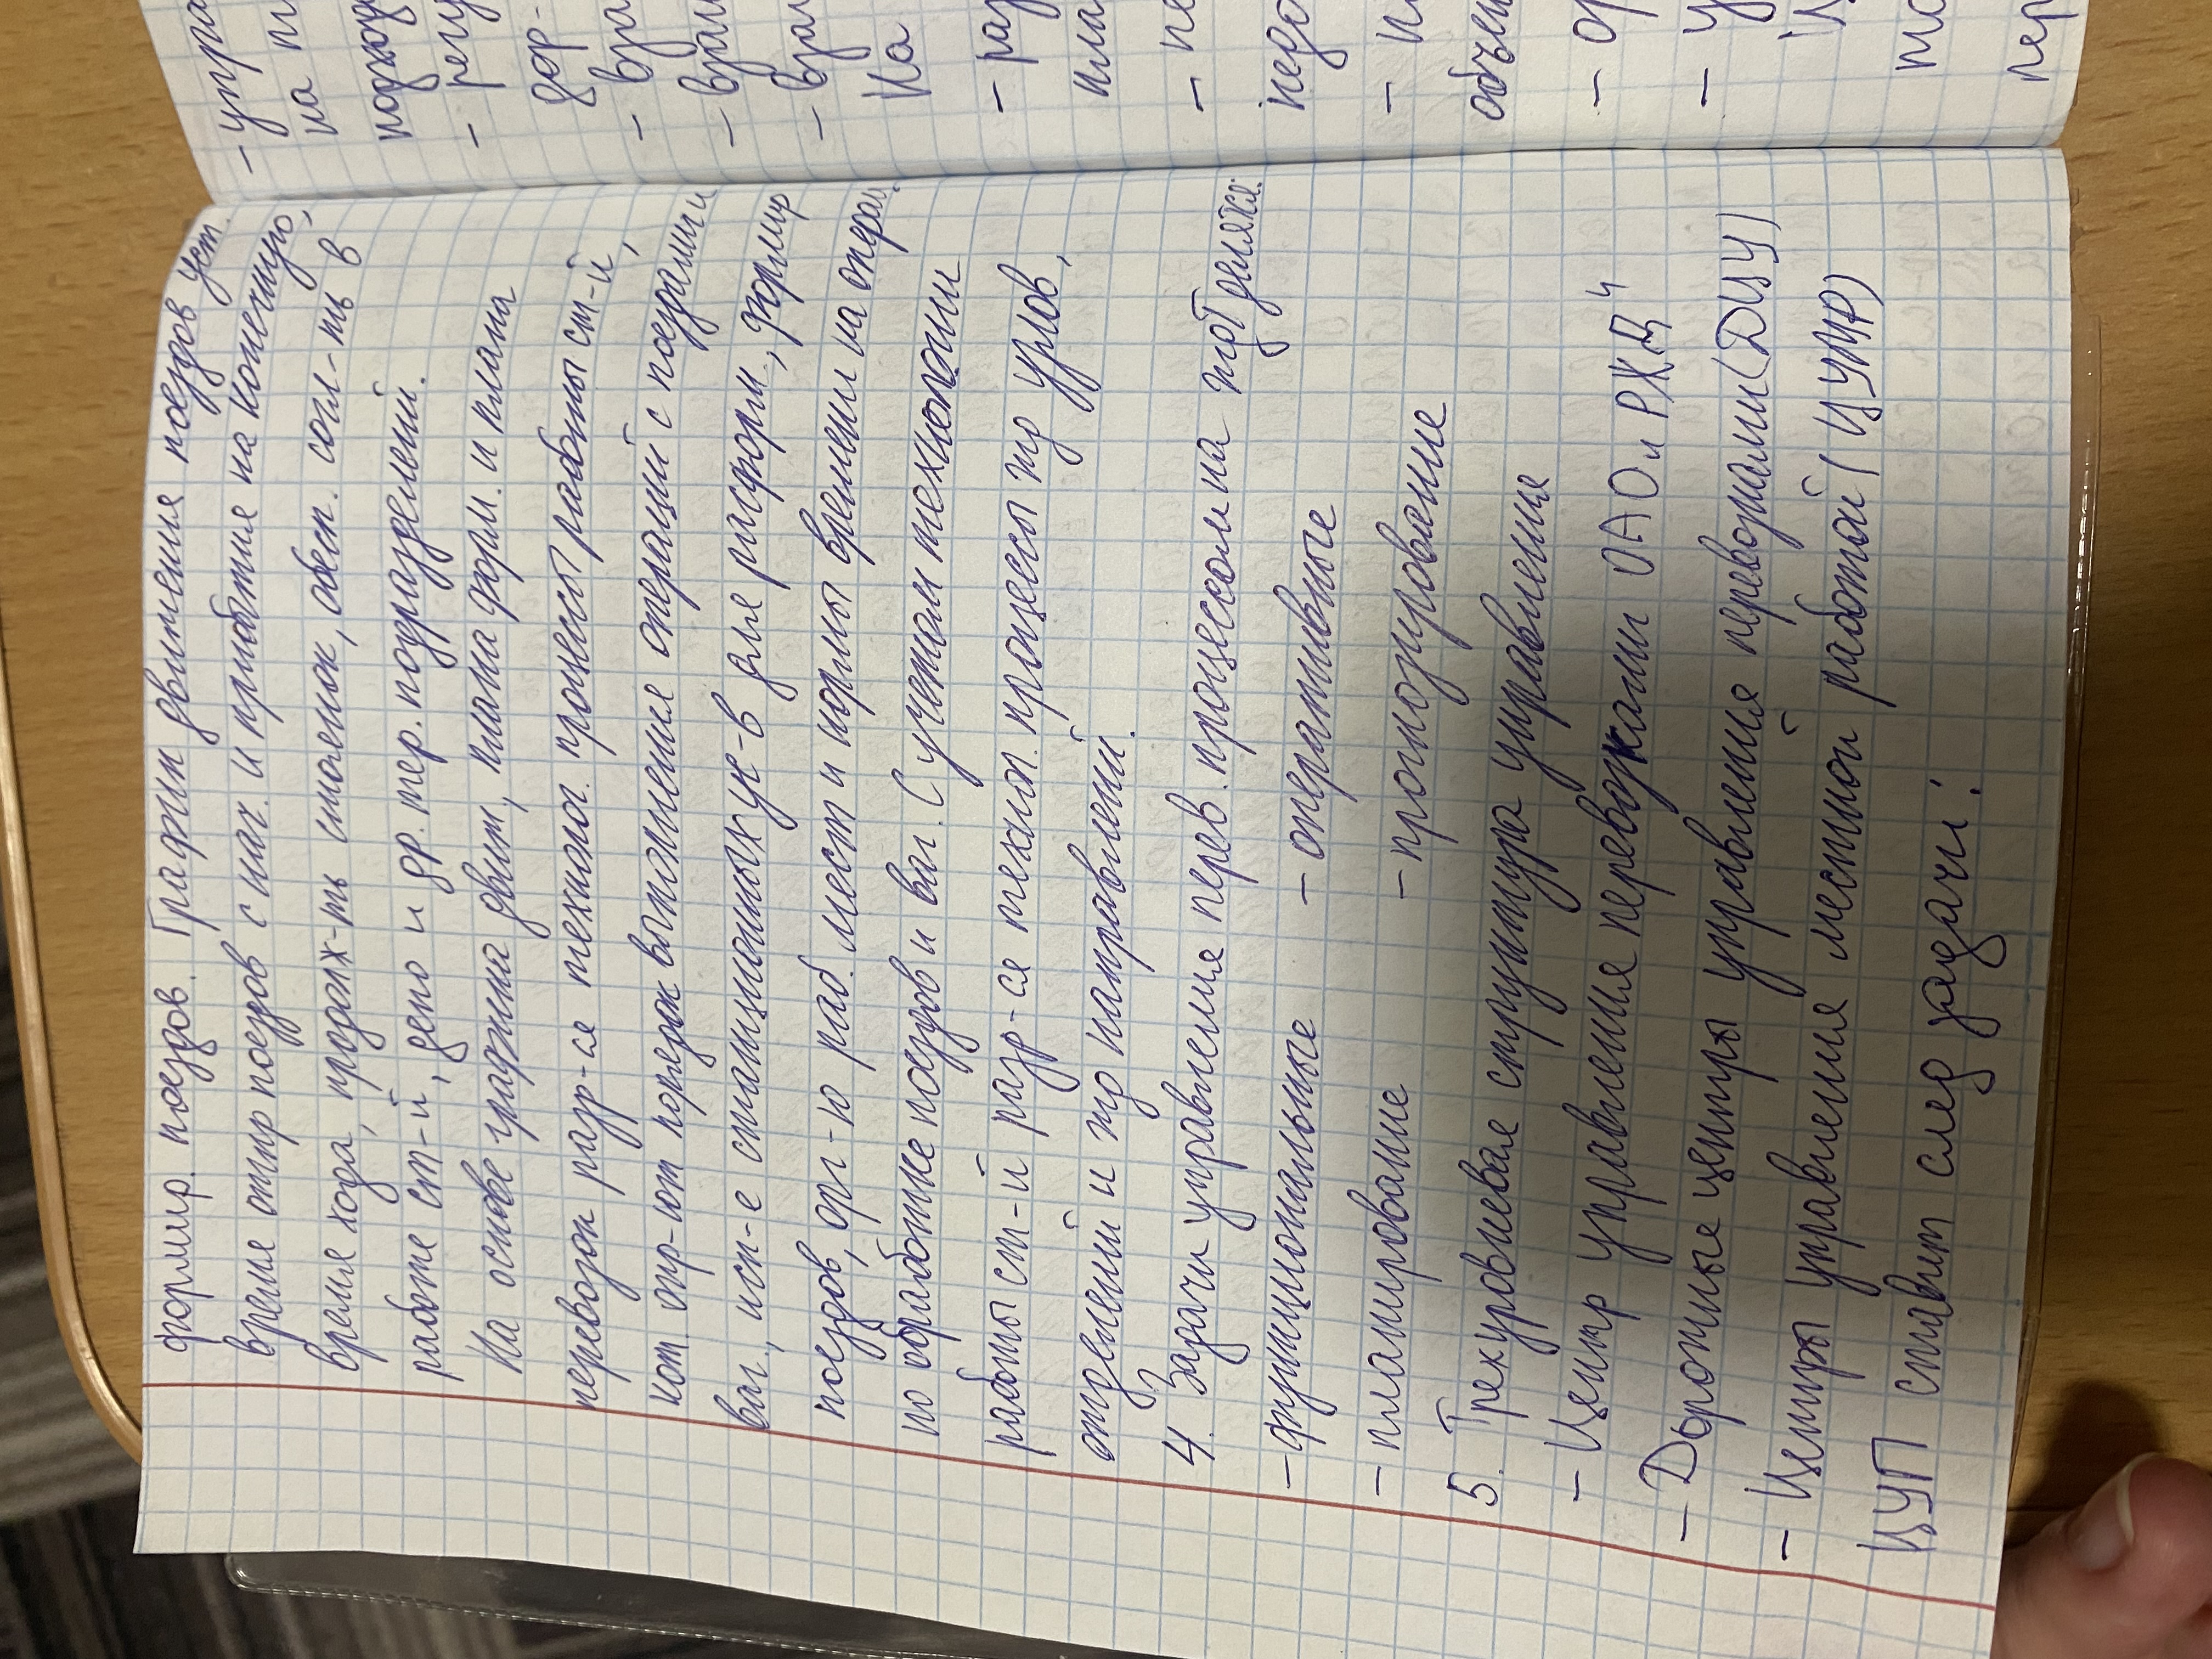 формир. поездов. График движения поездов уст.
время отпр поездов с нач. и прибытия на конечную,
время хода, продолж-ть стоянок, обесп. согл-ть в
работе ст-й, депо и др. тер. подразделений.
На основе графика движ, плана форм. и плана
перевозок разр-ся технолог. процессы работы ст-й,
кот. опр-ют порядок выполнения операций с поездами и
ваг., исп-е станционных ус-в для расформ, формир
поездов, орг-ю раб. мест и нормы времени на опера.
по обработке поездов и ваг. С учетом технологии
работы ст-й разр-ся технол. процессы жд узлов,
отделений и жд направлений.
4. Задачи управления перев. процессом на жд делятся:
- функциональные - оперативные
- планирование - прогнозирование
5. Трехуровневая структура управления
- Центр управления перевозками ОАО „РЖД"
- Дорожные центры управления перевозками (ДЦУ)
- Центры управления местной работой (ЦУМР)
ЦУП ставит след задачи:
- упра
на п
подход
- регу
дор-
- вза
- взаи
- взаи
На
- раз
пла
- пе
недо
- п
объем
- ор
- у
то
пер